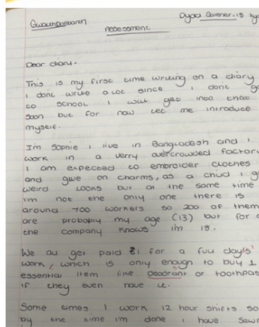 assessment.
Dear diary.
This is my first time writing on a diary
I dont write a lot since I dont g
to School. I will get into that
Soon but for now let me introduce
myself.
I'm Sophie I live in Bangladesh and I
work in a very overcrowded factor
I am expected to embroider clothes
and glue on charms, as a child I g
weird looks but at the same time
I'm not the only one there is
around 700 workers so 200 of them
are probably my age (13) but for a
the company knows im 15.
We all get paid ₹1 for a full days'
work, which is only enough to buy 1
essential item like deodrant or toothpas
if they even have it.
Some times I work 12 hour shifts so
by the time im done I have sew